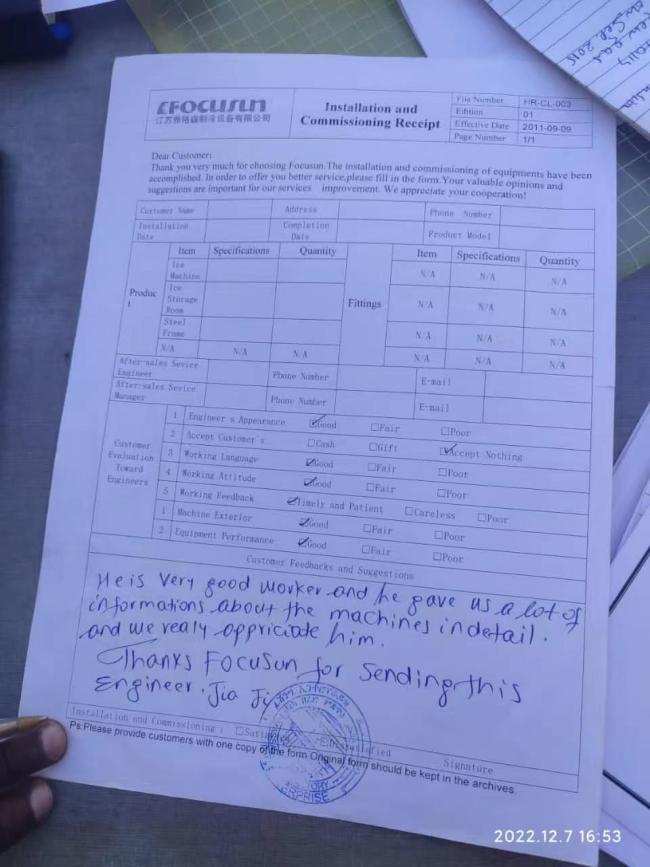 FOCUSUN
江苏雅格森制冷设备有限公司
Installation and
Commissioning Receipt
File Number HR-CL-003
Edition 01
Effective Date 2011-09-09
Page Number 1/1
Dear Customer:
Thank you very much for choosing Focusun.The installation and commissioning of equipments have been
accomplished. In order to offer you better service,please fill in the form.Your valuable opinions and
suggestions are important for our services improvement. We appreciate your cooperation!
Customer Name Address Phone Number
Installation Date Completion Date Product Model
Item Specifications Quantity Item Specifications Quantity
Product
Ice Machine N/A N/A N/A
Ice Storage Room Fittings N/A N/A N/A
Steel Frame N/A N/A N/A
N/A N/A N/A N/A N/A N/A
After-sales Sevice Engineer Phone Number E-mail
After-sales Sevice Manager Phone Number E-mail
Customer Evaluation Toward Engineers
1 Engineer's Appearance ☑Good ☐Fair ☐Poor
2 Accept Customer's ☐Cash ☐Gift ☑Accept Nothing
3 Working Language ☑Good ☐Fair ☐Poor
4 Working Attitude ☑Good ☐Fair ☐Poor
5 Working Feedback ☑Timely and Patient ☐Careless ☐Poor
1 Machine Exterior ☑Good ☐Fair ☐Poor
2 Equipment Performance ☑Good ☐Fair ☐Poor
Customer Feedbacks and Suggestions
He is very good worker and he gave us a lot of
informations about the machines in detail.
and we realy appriciate him.
Thanks Focusun for sending this
Engineer. Jia
Installation and Commissioning : Signature
Ps:Please provide customers with one copy of the form Original form should be kept in the archives.
2022.12.7 16:53